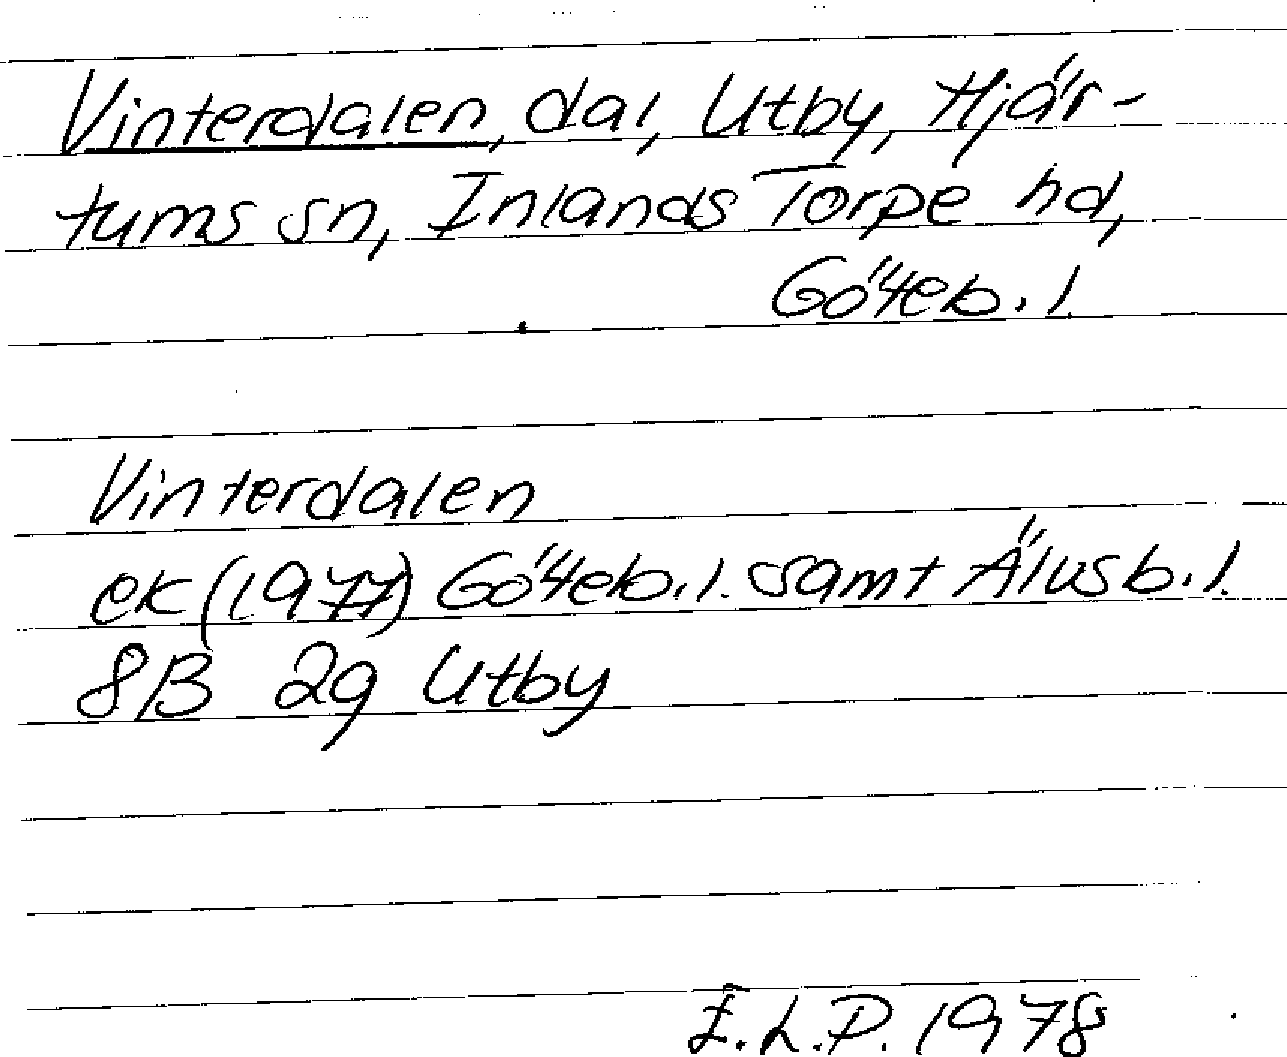 Vinterdalen, dal, Utby, Hjär-
tums sn, Inlands Torpe hd,
Göteb. l.
Vinterdalen
ek (1977) Göteb. l. samt Älvsb. l.
8B 2g Utby
E.L.P. 1978